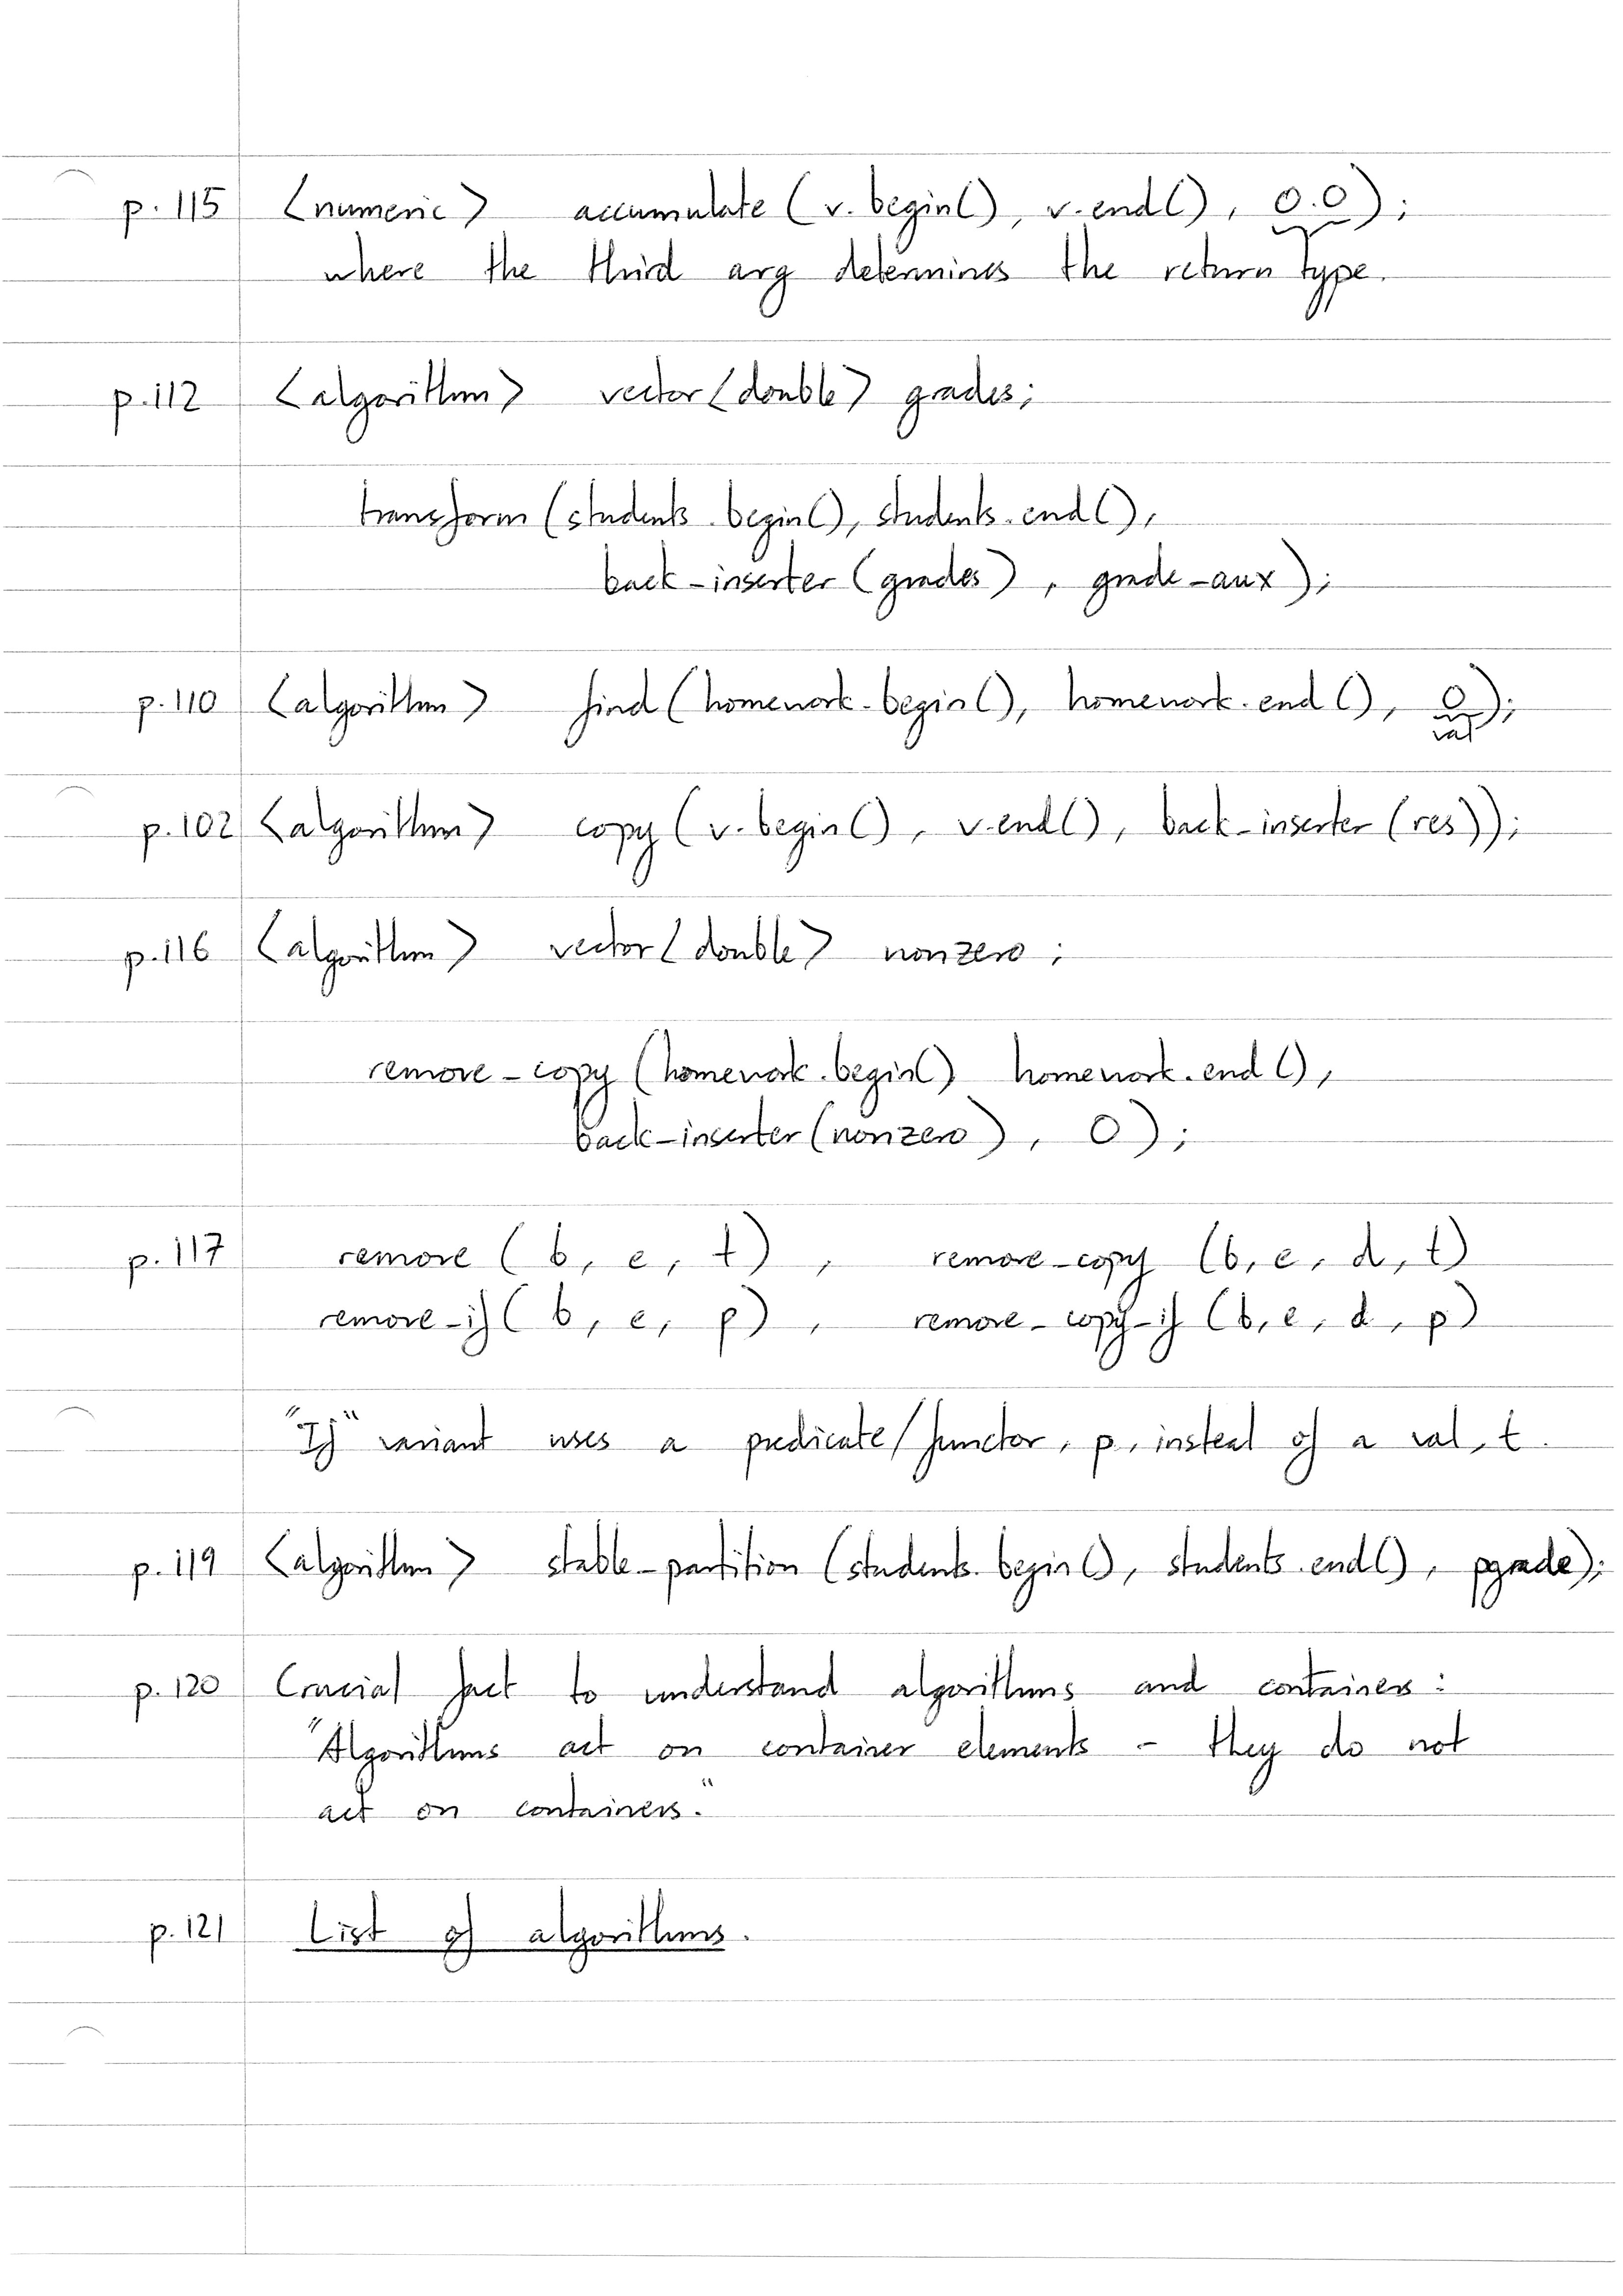 p. 115 <numeric> accumulate (v.begin(), v.end(), 0.0);
where the third arg determines the return type.
p.112 <algorithm> vector<double> grades;
transform (students.begin(), students.end(),
back_inserter (grades), grade_aux);
p.110 <algorithm> find (homework.begin(), homework.end(), 0);
val
p.102 <algorithm> copy (v.begin(), v.end(), back_inserter (res));
p.116 <algorithm> vector<double> nonzero;
remove_copy (homework.begin() homework.end(),
back_inserter (nonzero), 0);
p.117 remove (b, e, t), remove_copy (b, e, d, t)
remove_if (b, e, p), remove_copy_if (b, e, d, p)
"If" variant uses a predicate/functor, p, instead of a val, t.
p.119 <algorithm> stable_partition (students.begin(), students.end(), pgrade);
p.120 Crucial fact to understand algorithms and containers:
"Algorithms act on container elements - they do not
act on containers."
p.121 List of algorithms.